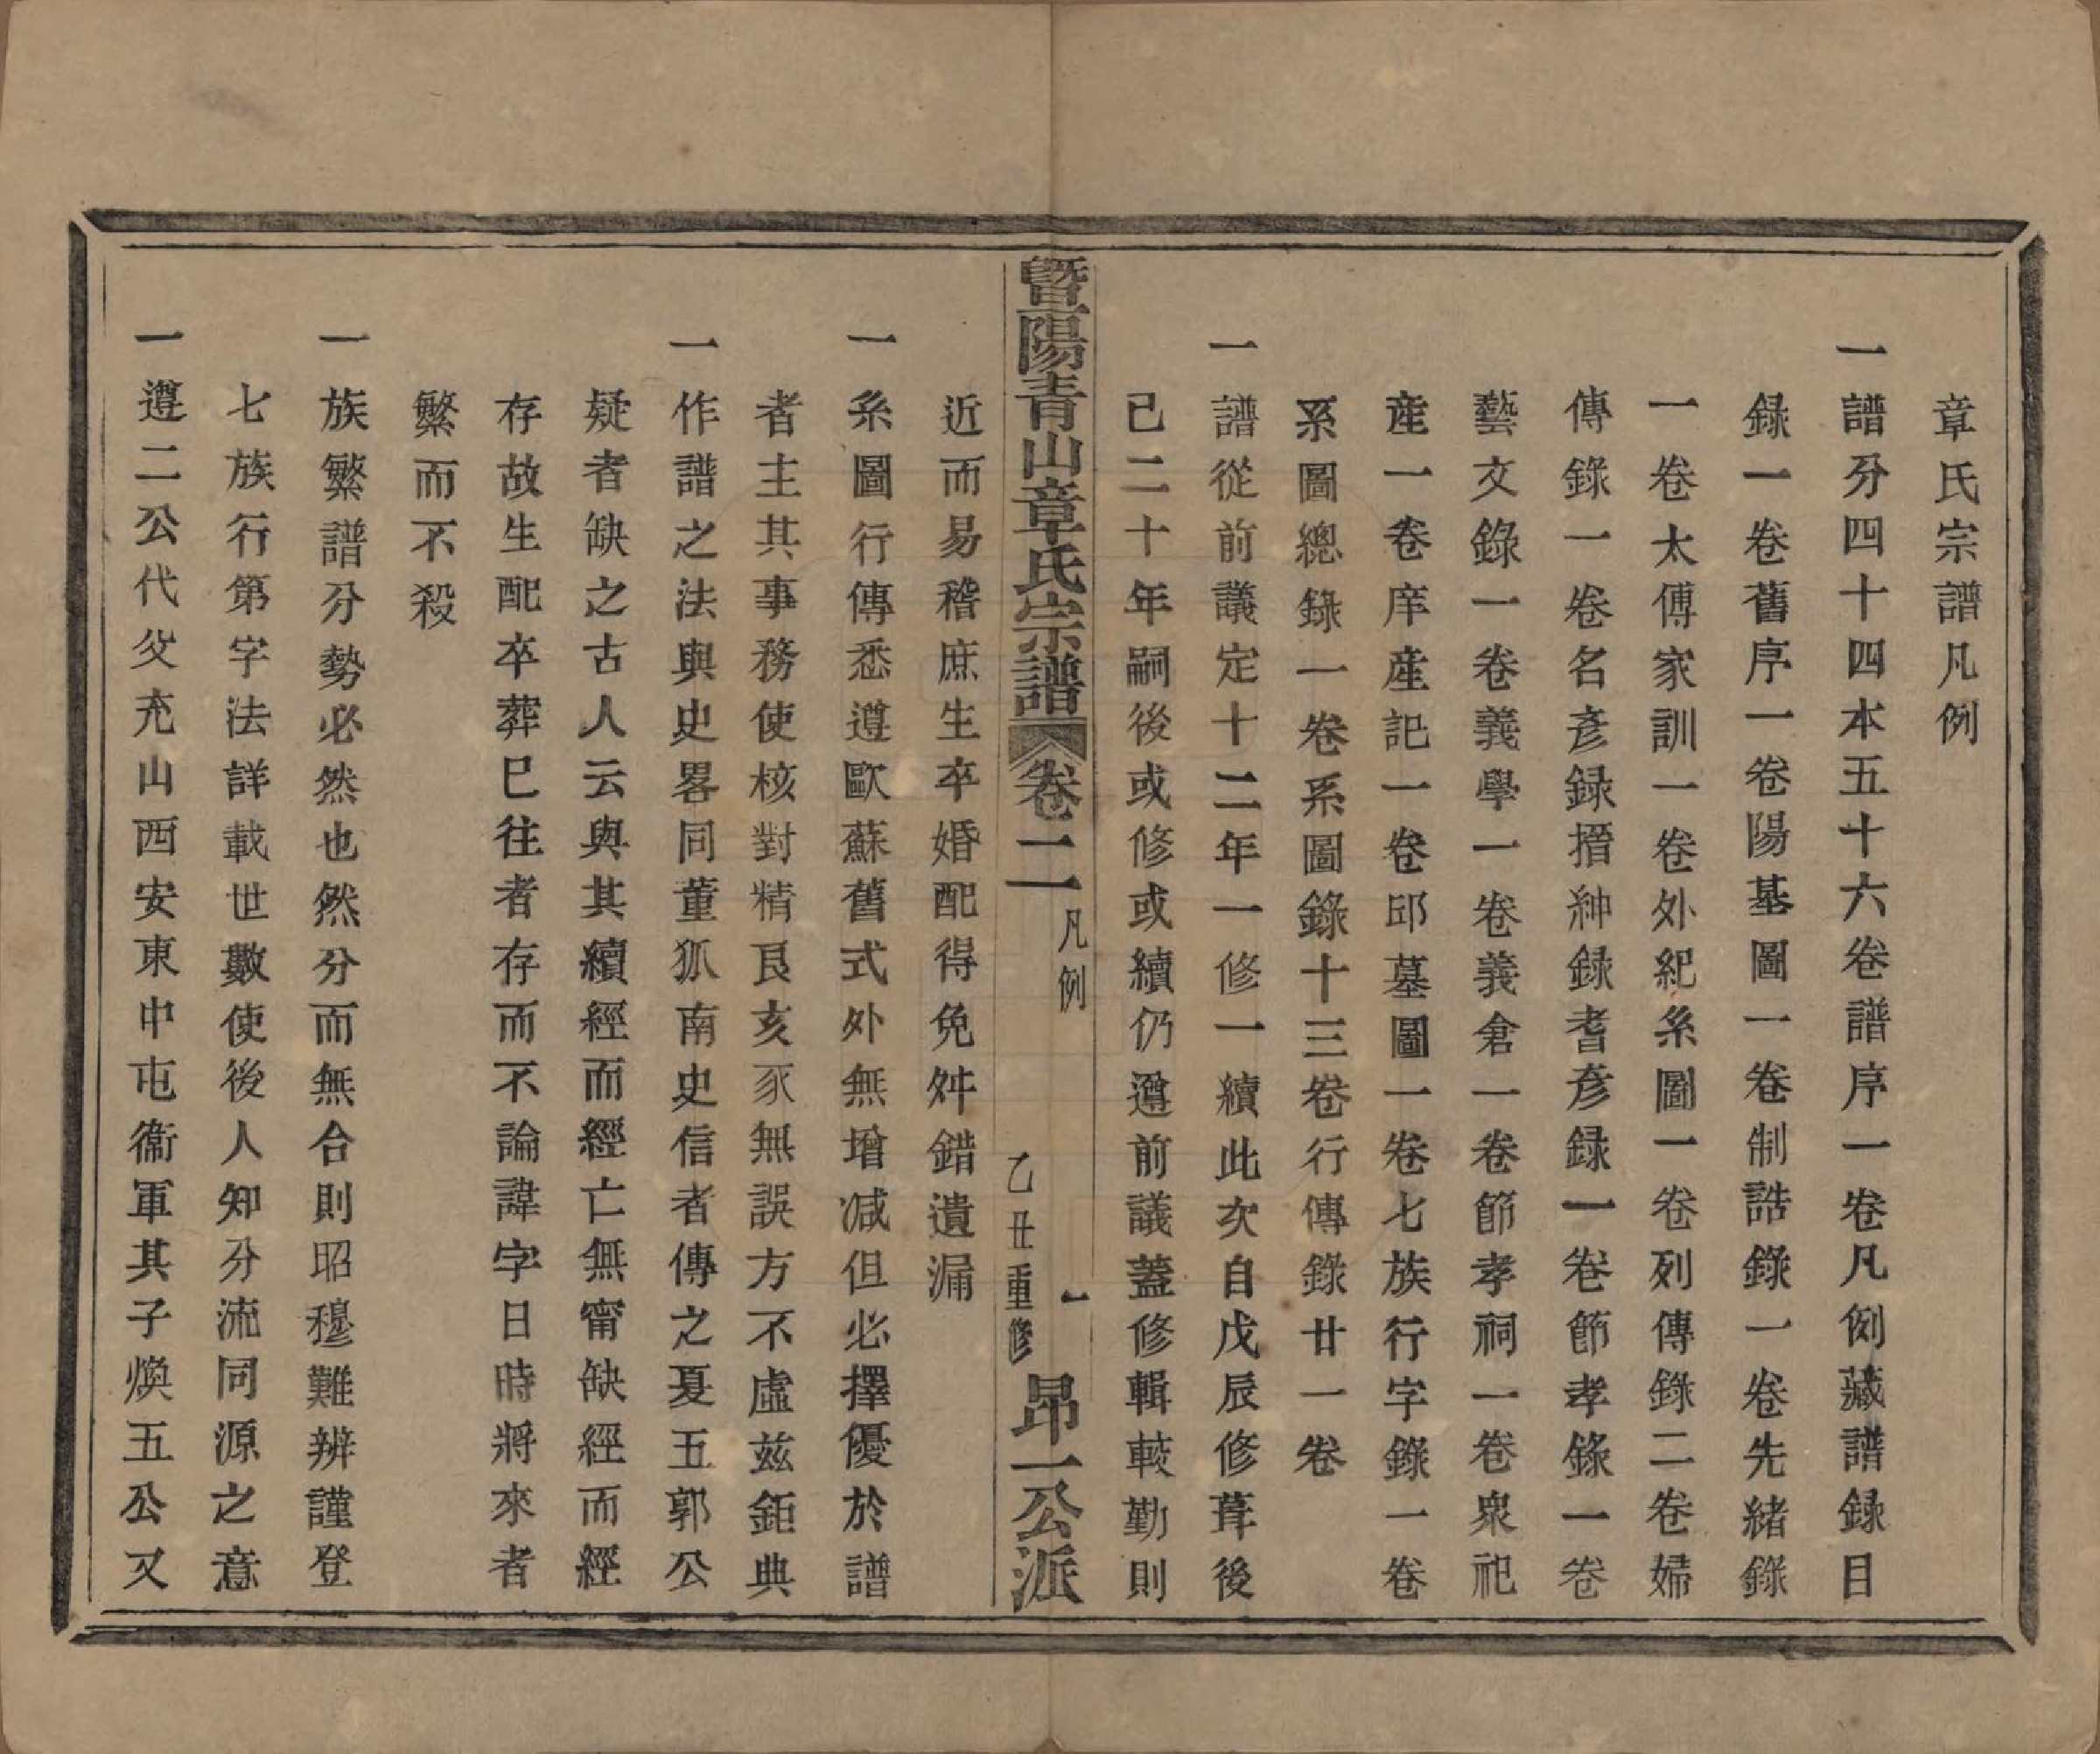 章氏宗譜凡例
一譜分四十四本五十六卷譜序一卷凡例藏譜錄目
錄一卷舊序一卷陽基圖一卷制誥錄一卷先緒錄
一卷太傅家訓一卷外紀系圖一卷列傳錄二卷婦
傳錄一卷名彥録搢紳録耆彥録一卷節孝錄一卷
藝文錄一卷義學一卷義倉一卷節孝祠一卷衆祀
産一卷庠産記一卷邱墓圖一卷七族行字錄一卷
系圖總錄一卷系圖錄十三卷行傳錄廿一卷
一譜從前議定十二年一修一續此次自戊辰修葺後
已二十年嗣後或修或續仍遵前議蓋修輯較勤則
暨陽青山章氏宗譜 卷二 凡例 一 乙丑重修 昂一公派
近而易稽庶生卒婚配得免舛錯遺漏
一系圖行傳悉遵歐蘇舊式外無增减但必擇優於譜
者主其事務使核對精良亥豕無誤方不虛茲鉅典
一作譜之法與史畧同董狐南史信者傳之夏五郭公
疑者缺之古人云與其續經而經亡無甯缺經而經
存故生配卒葬已往者存而不論諱字日時將來者
繁而不殺
一族繁譜分勢必然也然分而無合則昭穆難辨謹登
七族行第字法詳載世數使後人知分流同源之意
一遵二公代父充山西安東中屯衞軍其子煥五公又